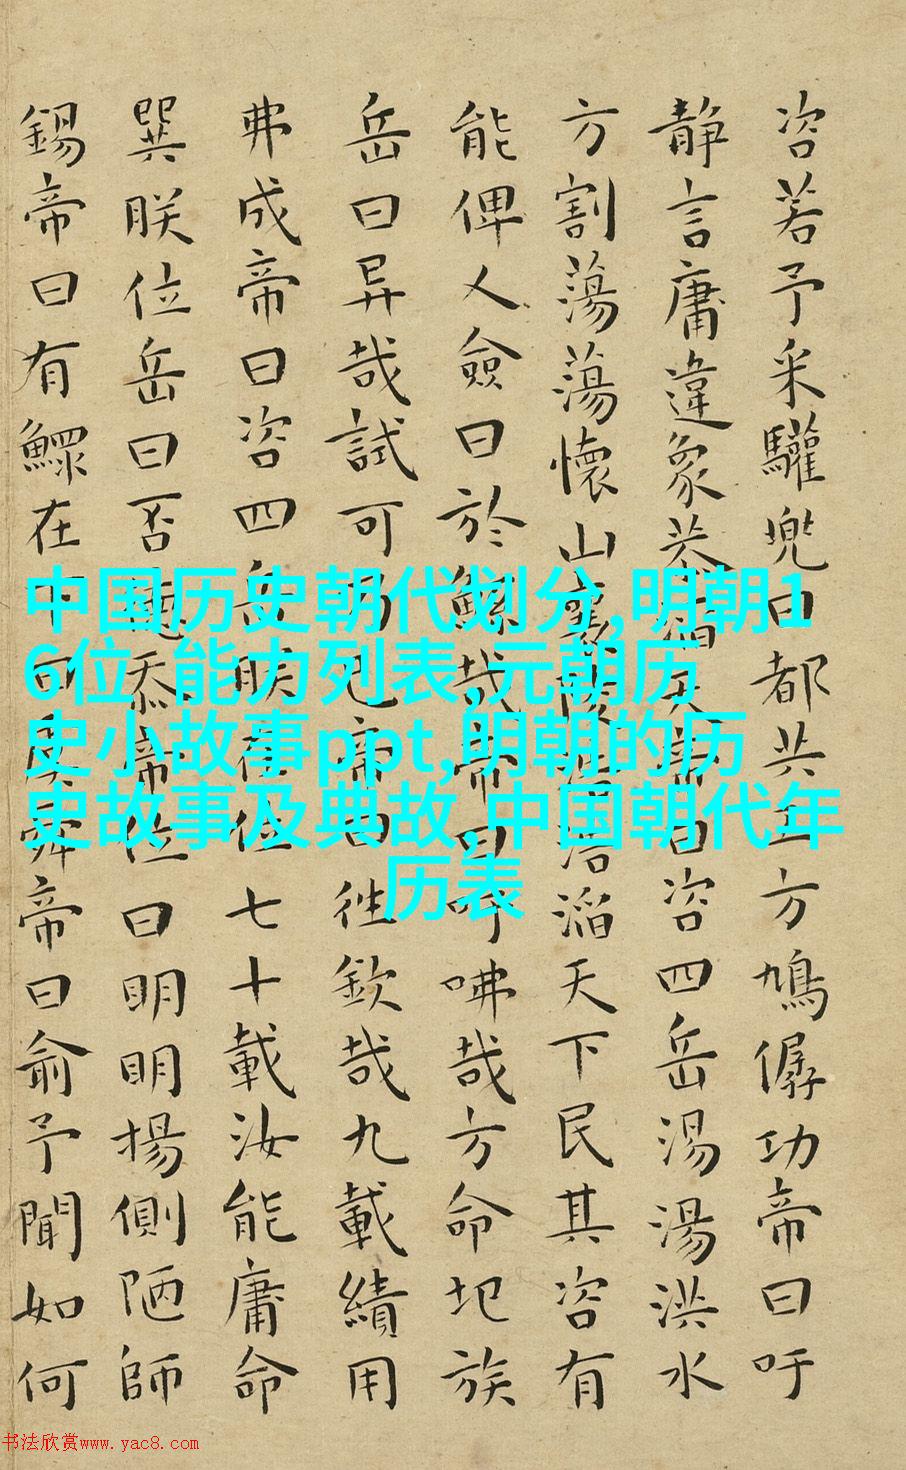 咨若予采驩兜曰都共工方鳩僝功帝曰吁
静言庸違象恭滔天帝曰咨四岳湯湯洪水
方割蕩蕩懷山襄陵浩浩滔天下民其咨有
能俾乂僉曰於鯀哉帝曰吁咈哉方命圮族
岳曰异哉試可乃已帝曰徃欽哉九載績用
弗成帝曰咨四岳朕在位七十載汝能庸命
巽朕位岳曰否悳忝帝位曰明明揚側陋師
錫帝曰有鰥在下曰虞舜帝曰俞予聞如何
中国历史朝代划分,明朝1
6位 能力列表,元朝历
史小故事ppt,明朝的历
史故事及典故,中国朝代年
历表
书法欣赏www.yac8.com